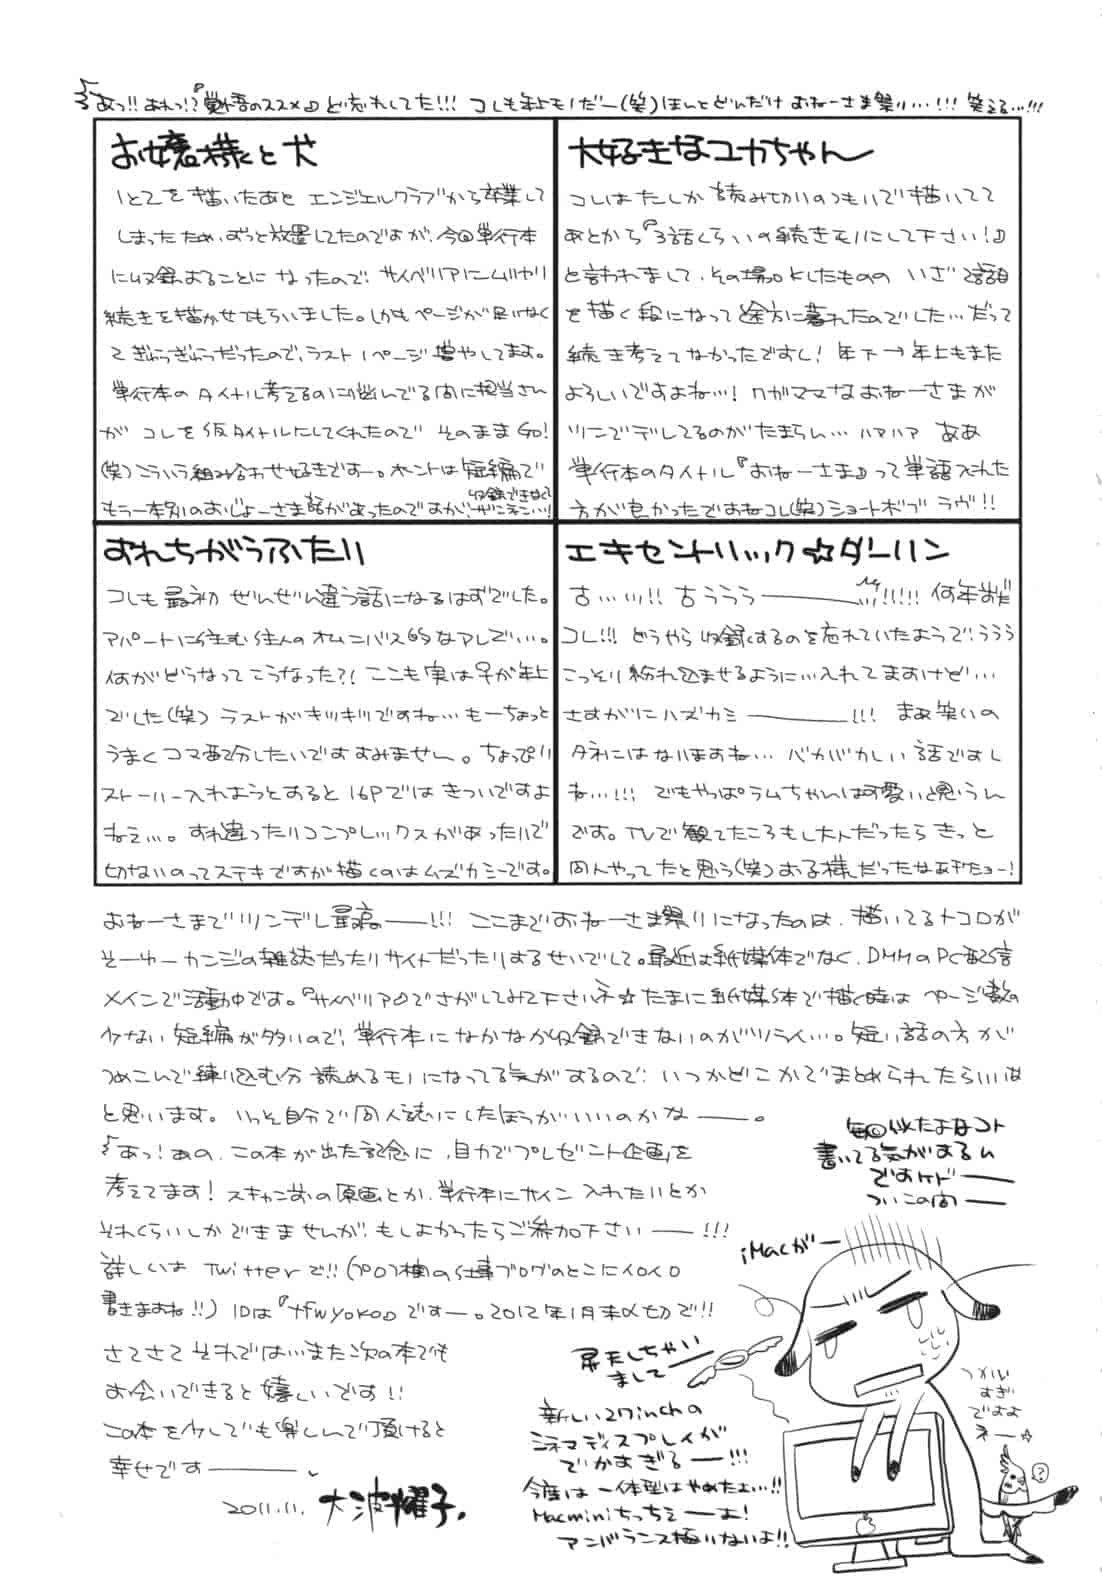 あっ!! あれっ!?『覚悟のススメ』ど忘れしてた!!! コレも年上モノだー(笑)ほんとどんだけ おねーさま祭り…!!! 笑える…!!!
お嬢様と犬
1とてを描いたあと エンジェルクラブから卒業して
しまったため、ずっと放置してたのですが、今回単行本
に収録することに なったので、サイベリアにムリヤリ
続きを描かせてもらいました。しかもページが足りなく
てぎゅうぎゅうだったので、ラスト1ページ増やしてます。
単行本の タイトル考えるのに悩んでる間に担当さん
が コレを仮タイトルにしてくれたので そのままGO!
(笑)こういう組み合わせ好きですー。ホントは短編で
もう一本別のおじょーさま話があったのですが、収録できなくて
ザンネン…!
大好きなユカちゃん
コレはたしか 読み切りのつもりで描いてて
あとから『3話くらいの続きモノにして下さい!』
と言われまして、その場O としたものの いざ 2話目
を描く段になって途方に暮れたのでした…だって
続き考えてなかったですし! 年下→年上もまた
よろしいですよね…! ワガママなおねーさまが
ツンでデレしてるのがたまらん… ハァハァ ああ
単行本のタイトル『おねーさま』って単語入れた
方が良かったですねコレ(笑)ショートボブ ラヴ!!
すれちがうふたり
コレも 最初 ぜんぜん違う話になるはずでした。
アパートに住む住人のオムニバス的なアレで…。
何がどうなってこうなった?! ここも実は 子が年上
でした(笑) ラストがキツキツですね… もーちょっと
うまくコマ配分したいですすみません。ちょっぴり
ストーリー入れようとすると 16Pでは きついですよ
ねぇ…。 すれ違ったりコンプレックスがあったりで
切ないのってステキですが描くのはムズカシーです。
エキセントリック☆ダーリン
古…ッ!! 古ううう―――…!!!!! 何年前だ
コレ!!! どうやら 収録するのを忘れていたようで、ううう
こっそり紛れ込ませるように…入れてますけど…
さすがにハズカシ―――!!! まあ笑いの
タネにはなりますね… バカバカしい話ですし
ね…!!! でもやっぱラムちゃんは可愛いと思うん
です。TVで観てたころもし大人だったらきっと
同人やってたと思う(笑)お子様だったなあチキショー!
おねーさまでツンデレ最高――!!! ここまでおねーさま祭りになったのは、描いてるトコロが
そーゆーカンジの雑誌だったりサイトだったりするせいでして。最近は紙媒体でなく、DMMのPC配信
メインで活動中です。『サイベリア』でさがしてみて下さいネ☆ たまに紙媒体で描く時は ページ数の
少ない 短編が多いので、単行本に なかなか収録できないのがツライ…。短い話の方が
つめこんで練り込む分 読めるモノになってる気がするので、いつかどこかでまとめられたらいいな
と思います。いっそ自分で同人誌にしたほうがいいのかな――。
あっ! あの、この本が出た記念に、自力でプレゼント企画を
考えてます! スキャン前の原画とか、単行本にサイン 入れたいとか
それくらいしかできませんが、もしよかったらご参加下さい――!!!
詳しいは Twitterで!! (プロフ欄の仕事ブログのとこにイロイロ
書きますね!!) IDは『tfwyoko』ですー。2012年1月末〆切で!!
さてさて それでは…また次の本でも
お会いできると嬉しいです!!
この本を少しでも楽しんで頂けると
幸せです―――。
2011.11. 大波耀子。
毎回似たよなコト
書いてる気がするん
ですケドー
ついこの間――
iMacがー
昇天しちゃい
ましてー
新しい27inchの
シネマディスプレイが
でかすぎるー!!!
今度は 一体型はやめたよ…!!
Macminiちっちぇーよ!
アンバランス極りないよ!!
つかい
すぎ
ですよ
ネー☆
?